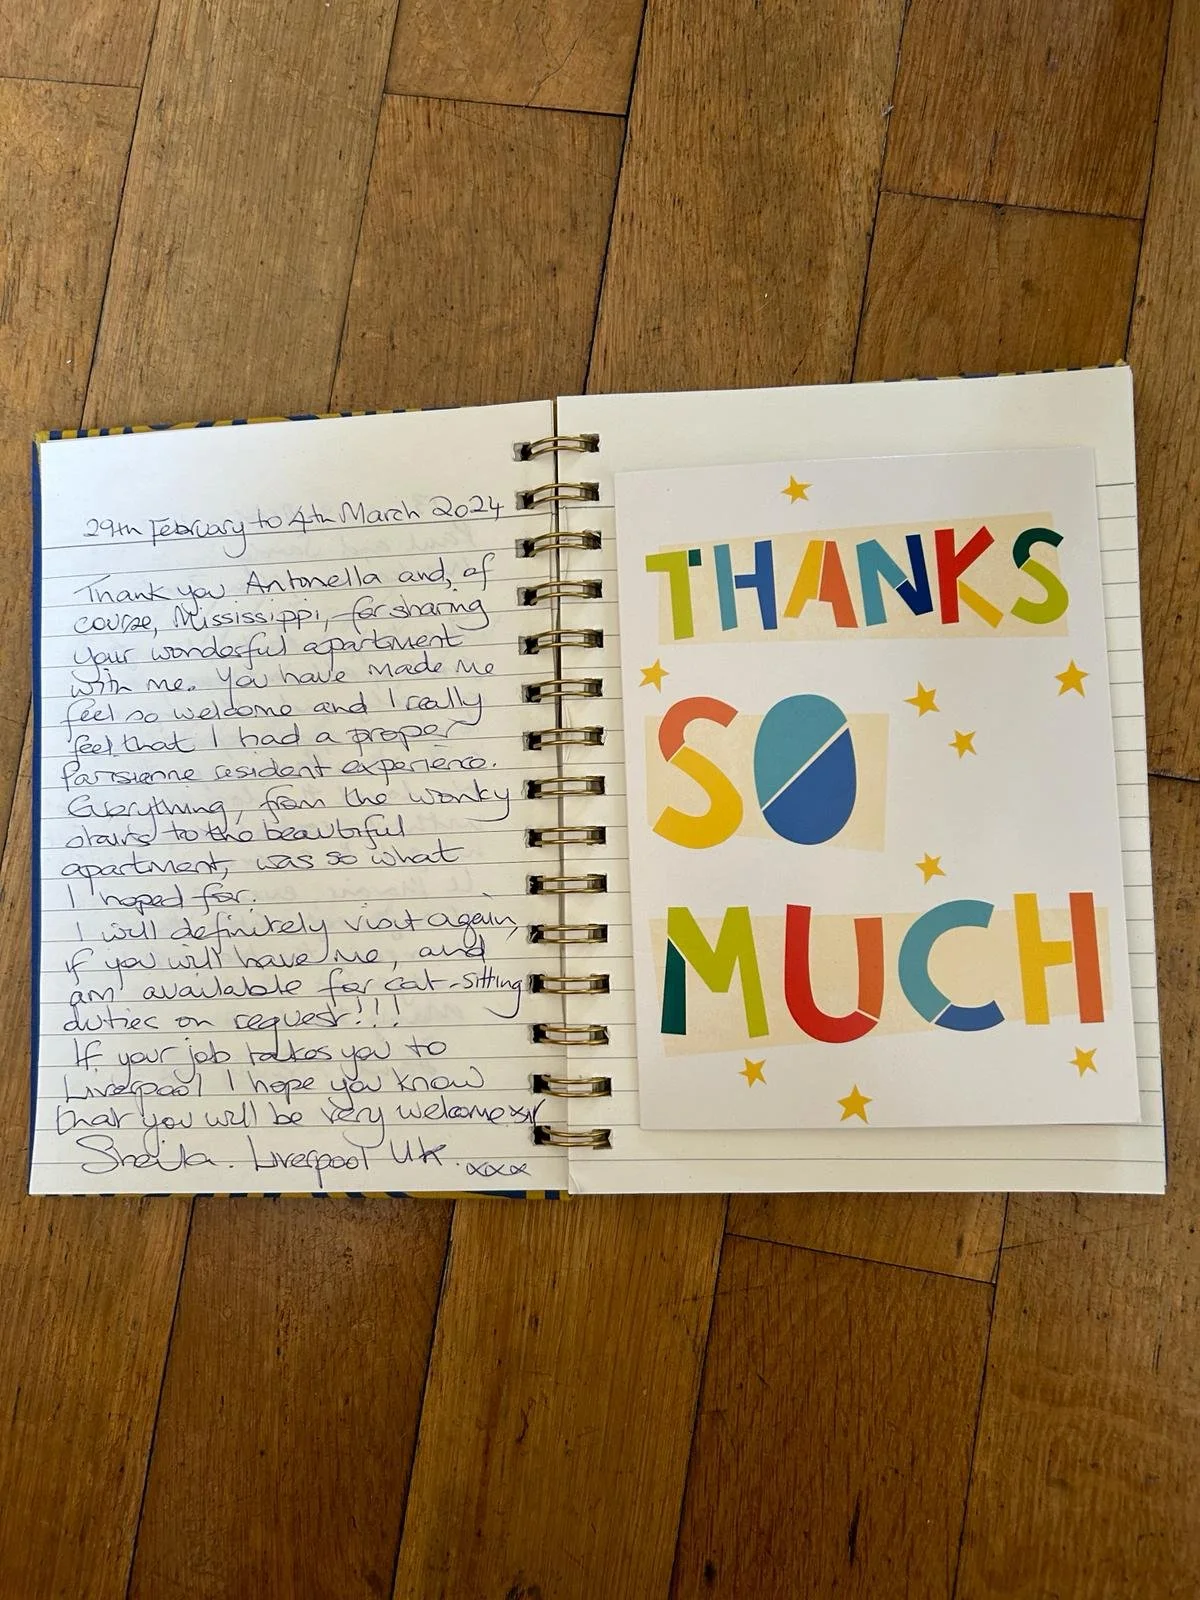 29th February to 4th March 2024
Thank you Antonella and, of
course, Mississippi, for sharing
your wonderful apartment
with me. You have made me
feel so welcome and I really
feel that I had a proper
Parisienne resident experience.
Everything, from the wonky
stairs to the beautiful
apartment, was so what
I hoped for.
I will definitely visit again,
if you will have me, and
am available for cat-sitting
duties on request!!!
If your job takes you to
Liverpool I hope you know
that you will be very welcome
Sheila. Liverpool UK. xxx
THANKS
SO
MUCH